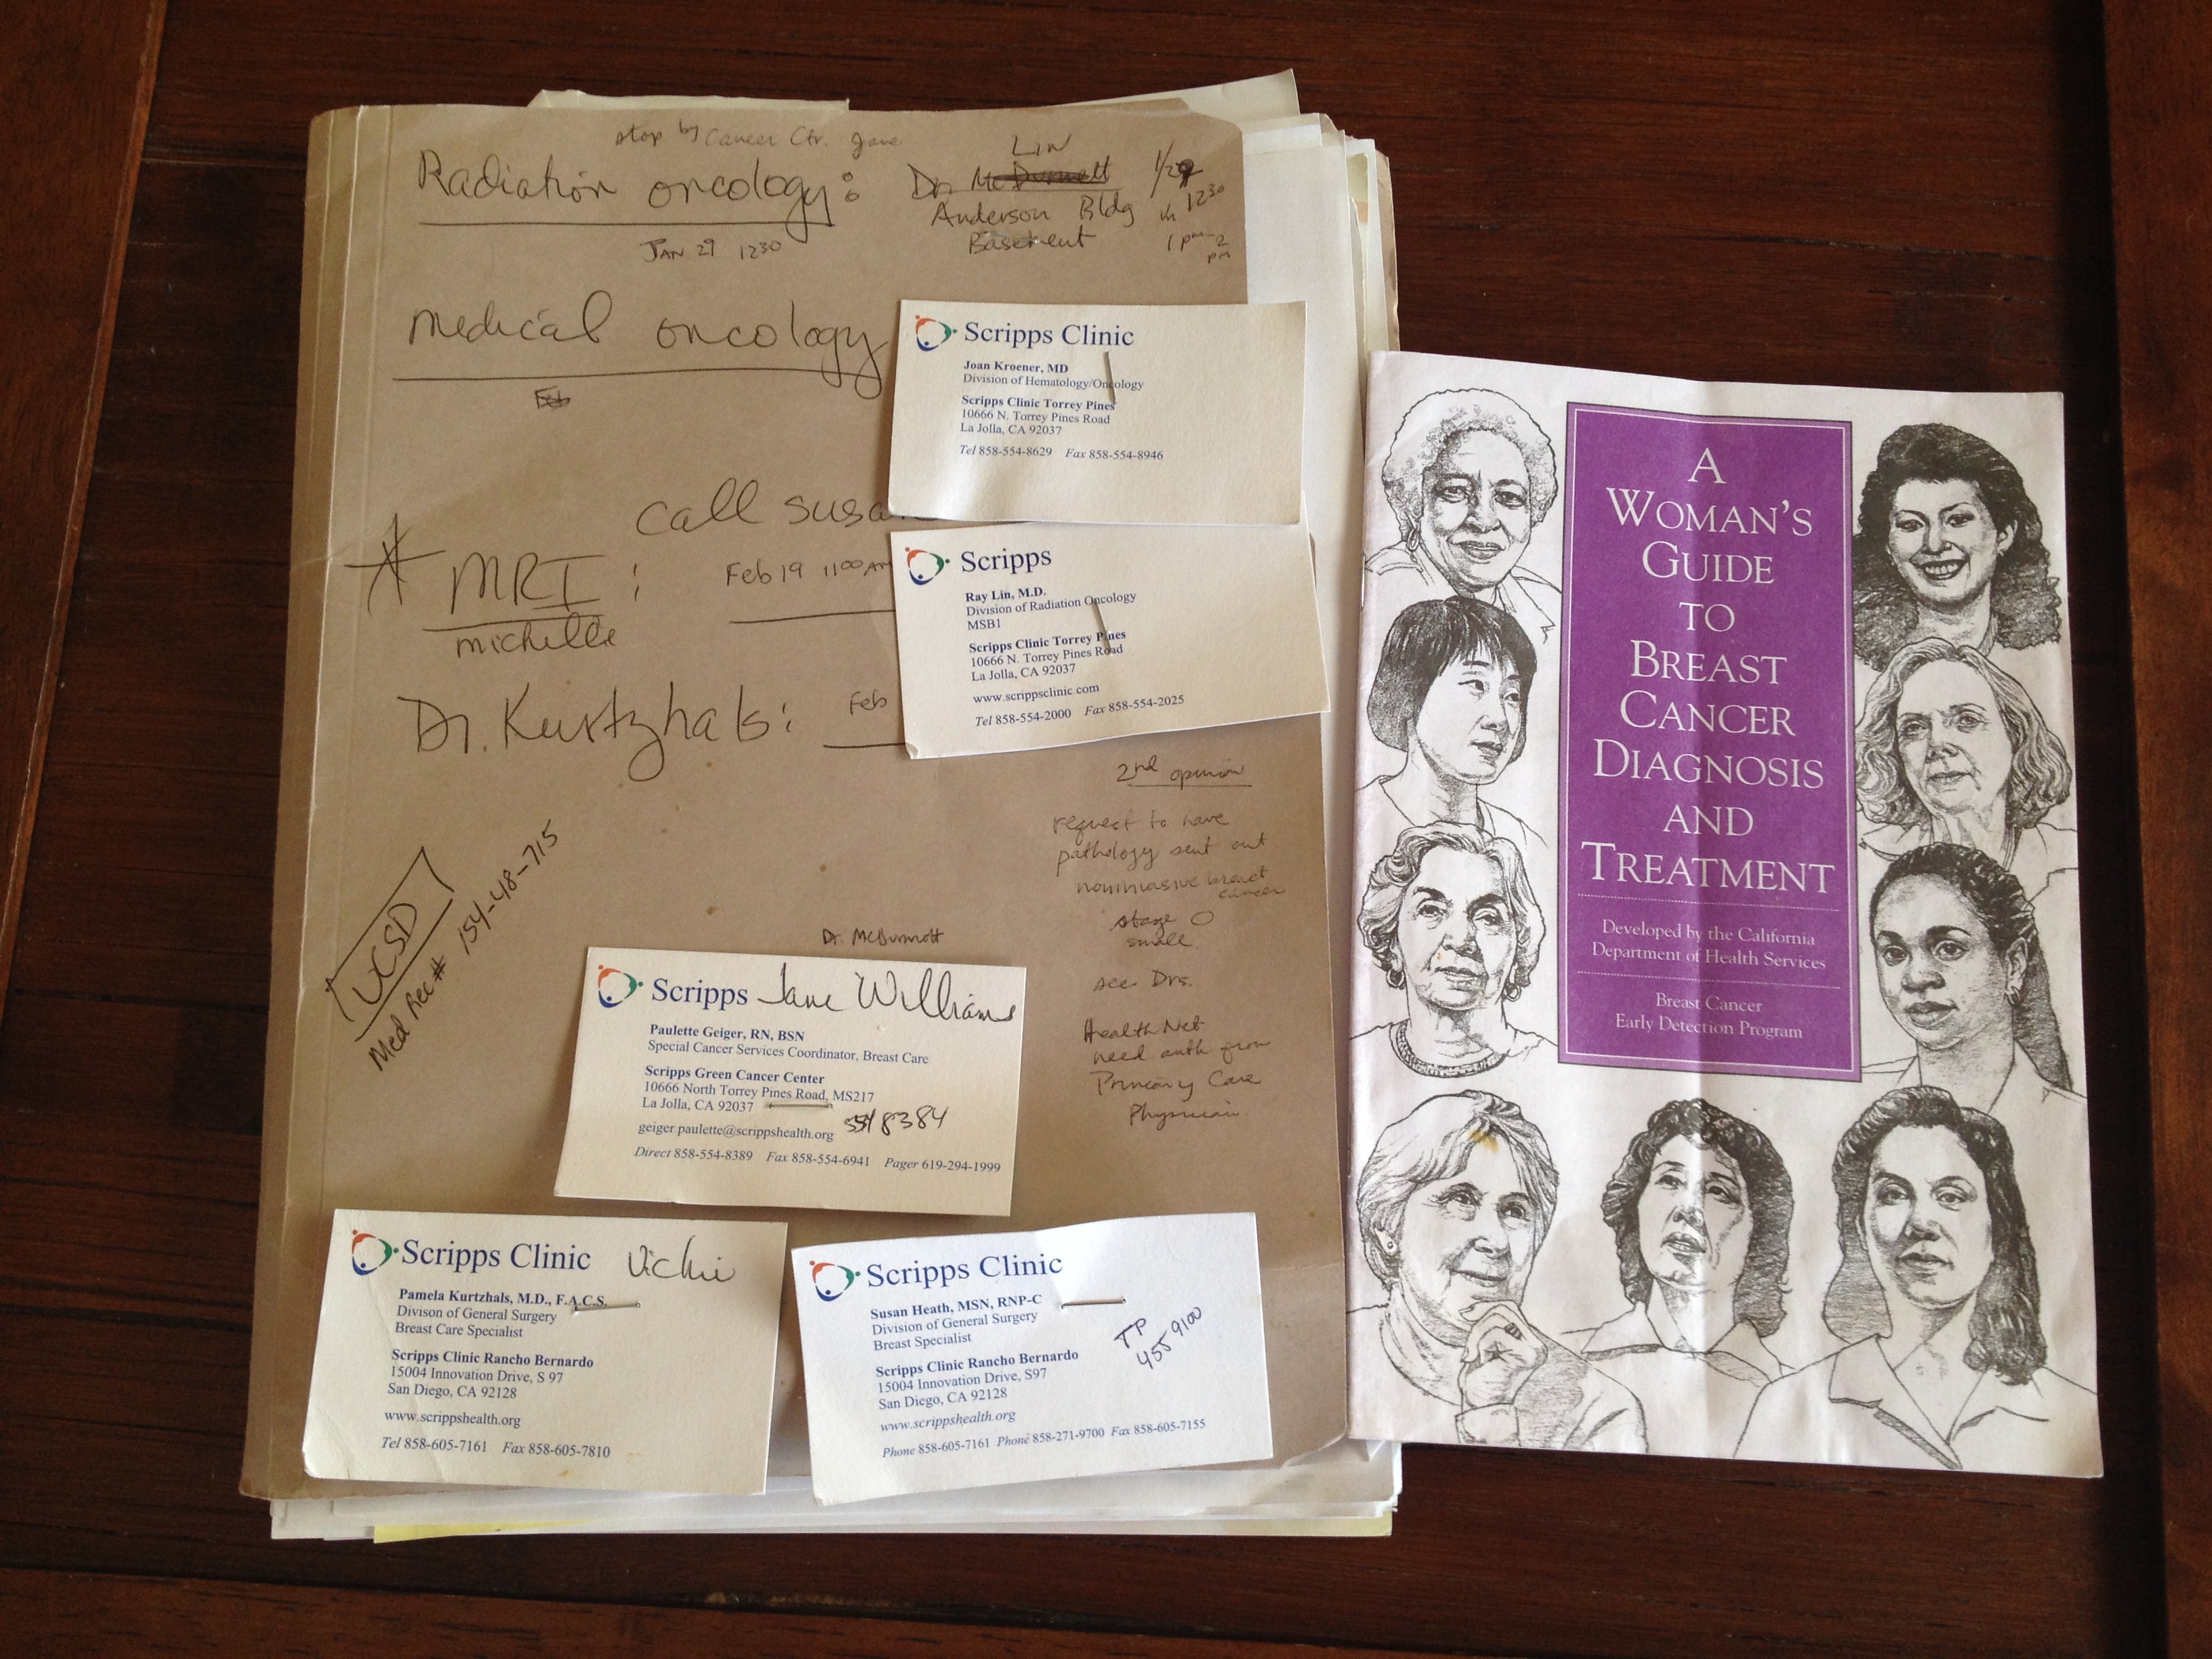 stop by Cancer Ctr. Jane
Radiation oncology:
JAN 29 1230
LIN
Dr. McDermott
Anderson Bldg
Basement
1/29
1230
1 pm-2
pm
medical oncology
Feb
call susan
* MRI:
Feb 19 11 00 AM
michelle
Dr. Kurtzhals:
Feb
UCSD
Med Rec# 154-48-715
2nd opinion
request to have
pathology sent out
noninvasive breast
cancer
stage 0
small
see Drs.
Health Net
need auth from
Primary Care
Physician.
Scripps Clinic
Joan Kroener, MD
Division of Hematology/Oncology
Scripps Clinic Torrey Pines
10666 N. Torrey Pines Road
La Jolla, CA 92037
Tel 858-554-8629 Fax 858-554-8946
Scripps
Ray Lin, M.D.
Division of Radiation Oncology
MSB1
Scripps Clinic Torrey Pines
10666 N. Torrey Pines Road
La Jolla, CA 92037
www.scrippsclinic.com
Tel 858-554-2000 Fax 858-554-2025
Dr. McDurmott
Scripps Jane Williams
Paulette Geiger, RN, BSN
Special Cancer Services Coordinator, Breast Care
Scripps Green Cancer Center
10666 North Torrey Pines Road, MS217
La Jolla, CA 92037
554 8384
geiger.paulette@scrippshealth.org
Direct 858-554-8389 Fax 858-554-6941 Pager 619-294-1999
Scripps Clinic Vickie
Pamela Kurtzhals, M.D., F.A.C.S.
Divison of General Surgery
Breast Care Specialist
Scripps Clinic Rancho Bernardo
15004 Innovation Drive, S 97
San Diego, CA 92128
www.scrippshealth.org
Tel 858-605-7161 Fax 858-605-7810
Scripps Clinic
Susan Heath, MSN, RNP-C
Division of General Surgery
Breast Specialist
TP
455 9100
Scripps Clinic Rancho Bernardo
15004 Innovation Drive, S97
San Diego, CA 92128
www.scrippshealth.org
Phone 858-605-7161 Phone 858-271-9700 Fax 858-605-7155
A
WOMAN'S
GUIDE
TO
BREAST
CANCER
DIAGNOSIS
AND
TREATMENT
Developed by the California
Department of Health Services
Breast Cancer
Early Detection Program